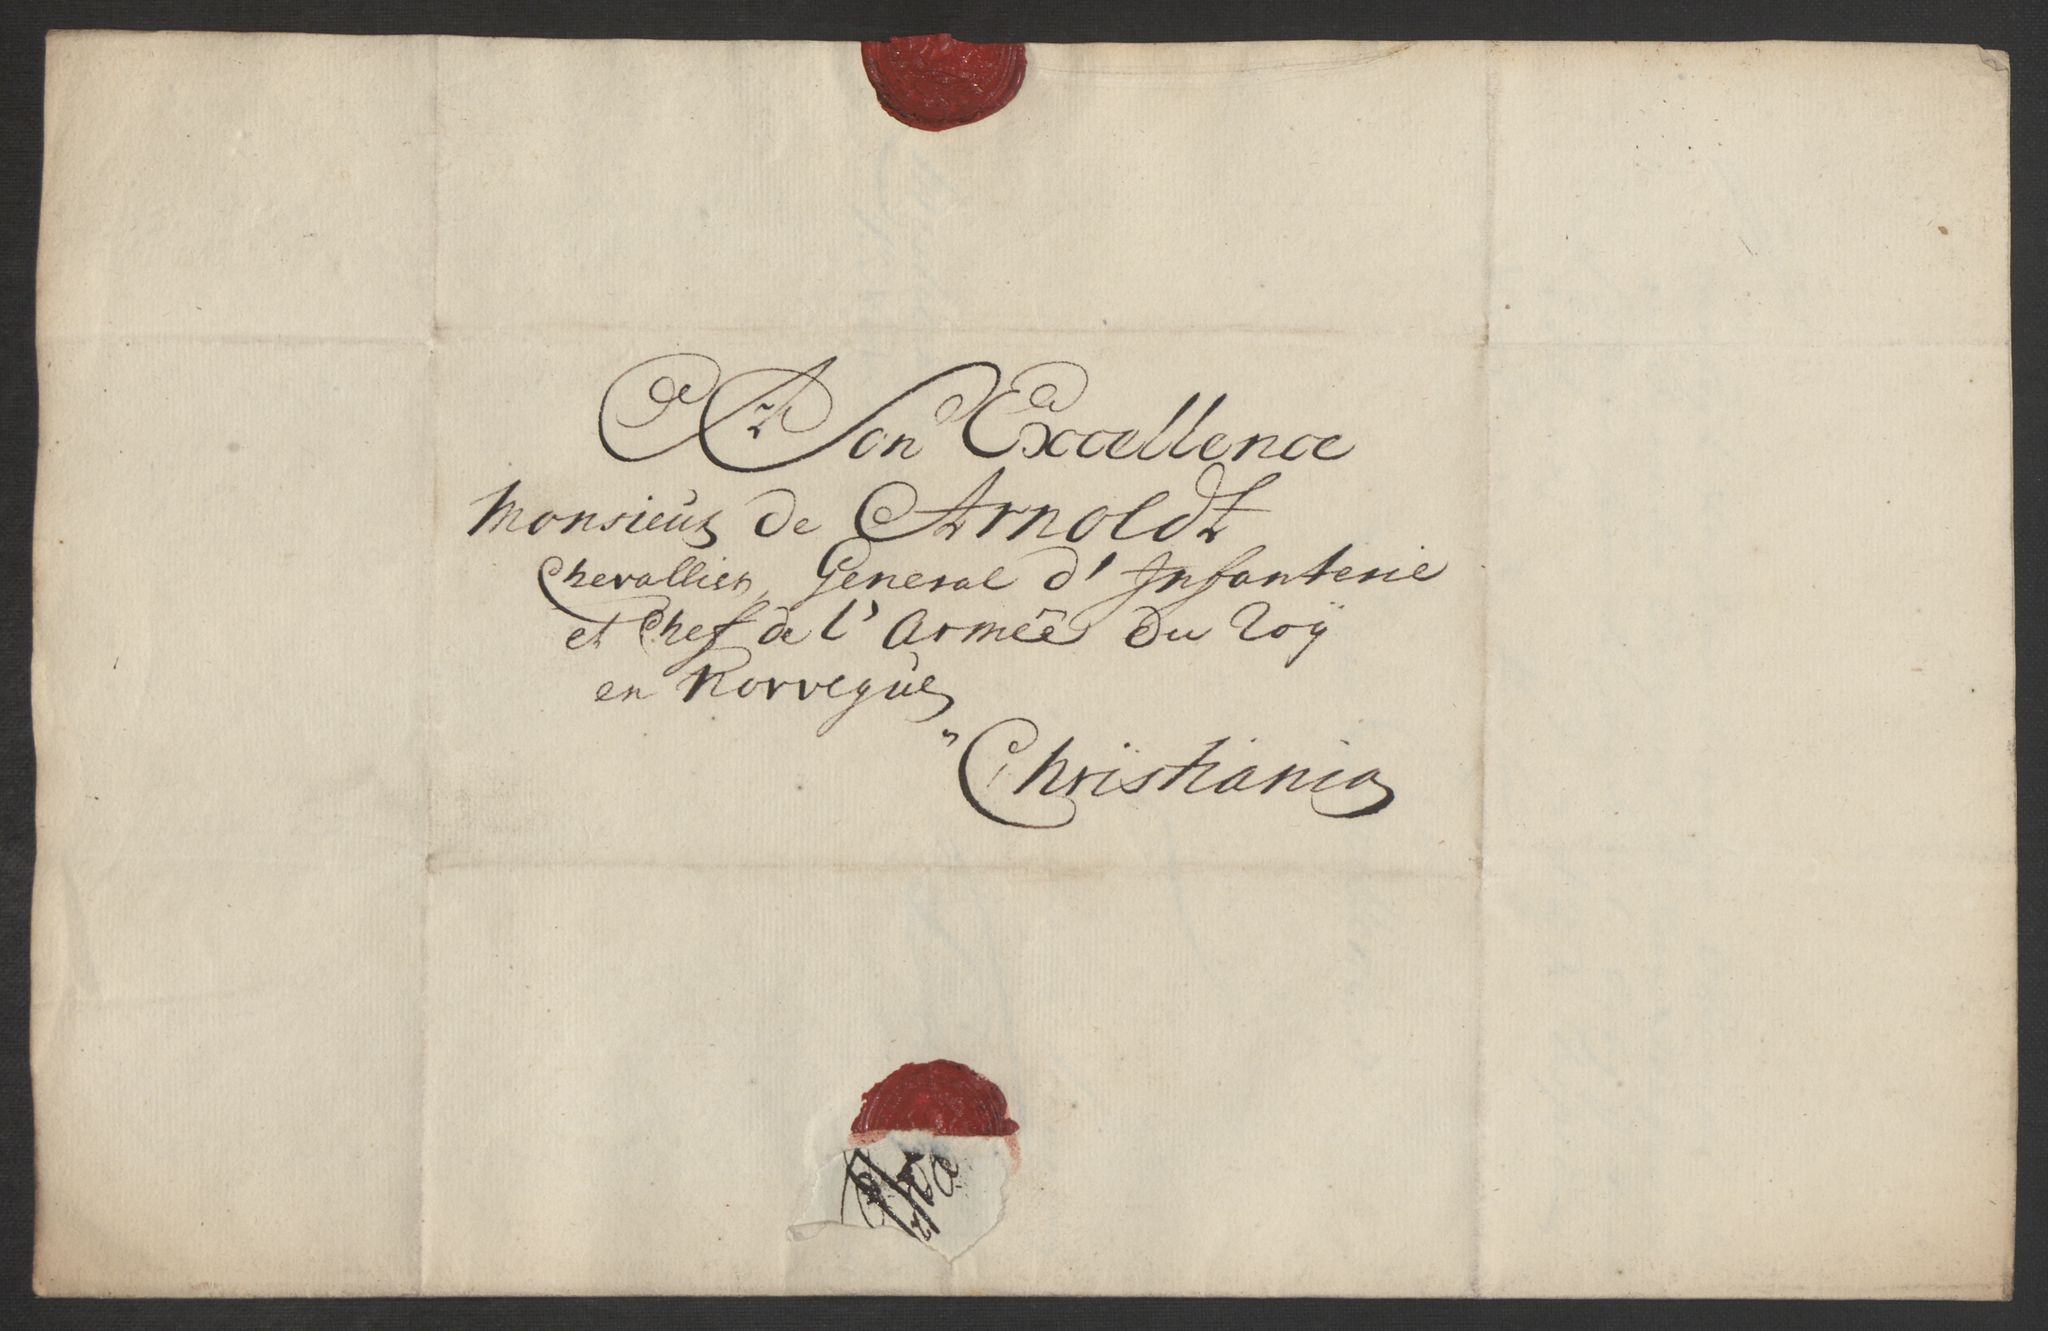 A Son Excellence
Monsieur de Arnoldt
Chevallier, General d' Infanterie
et Chef de l' Armée du Roÿ
en Norvegue
Christiania